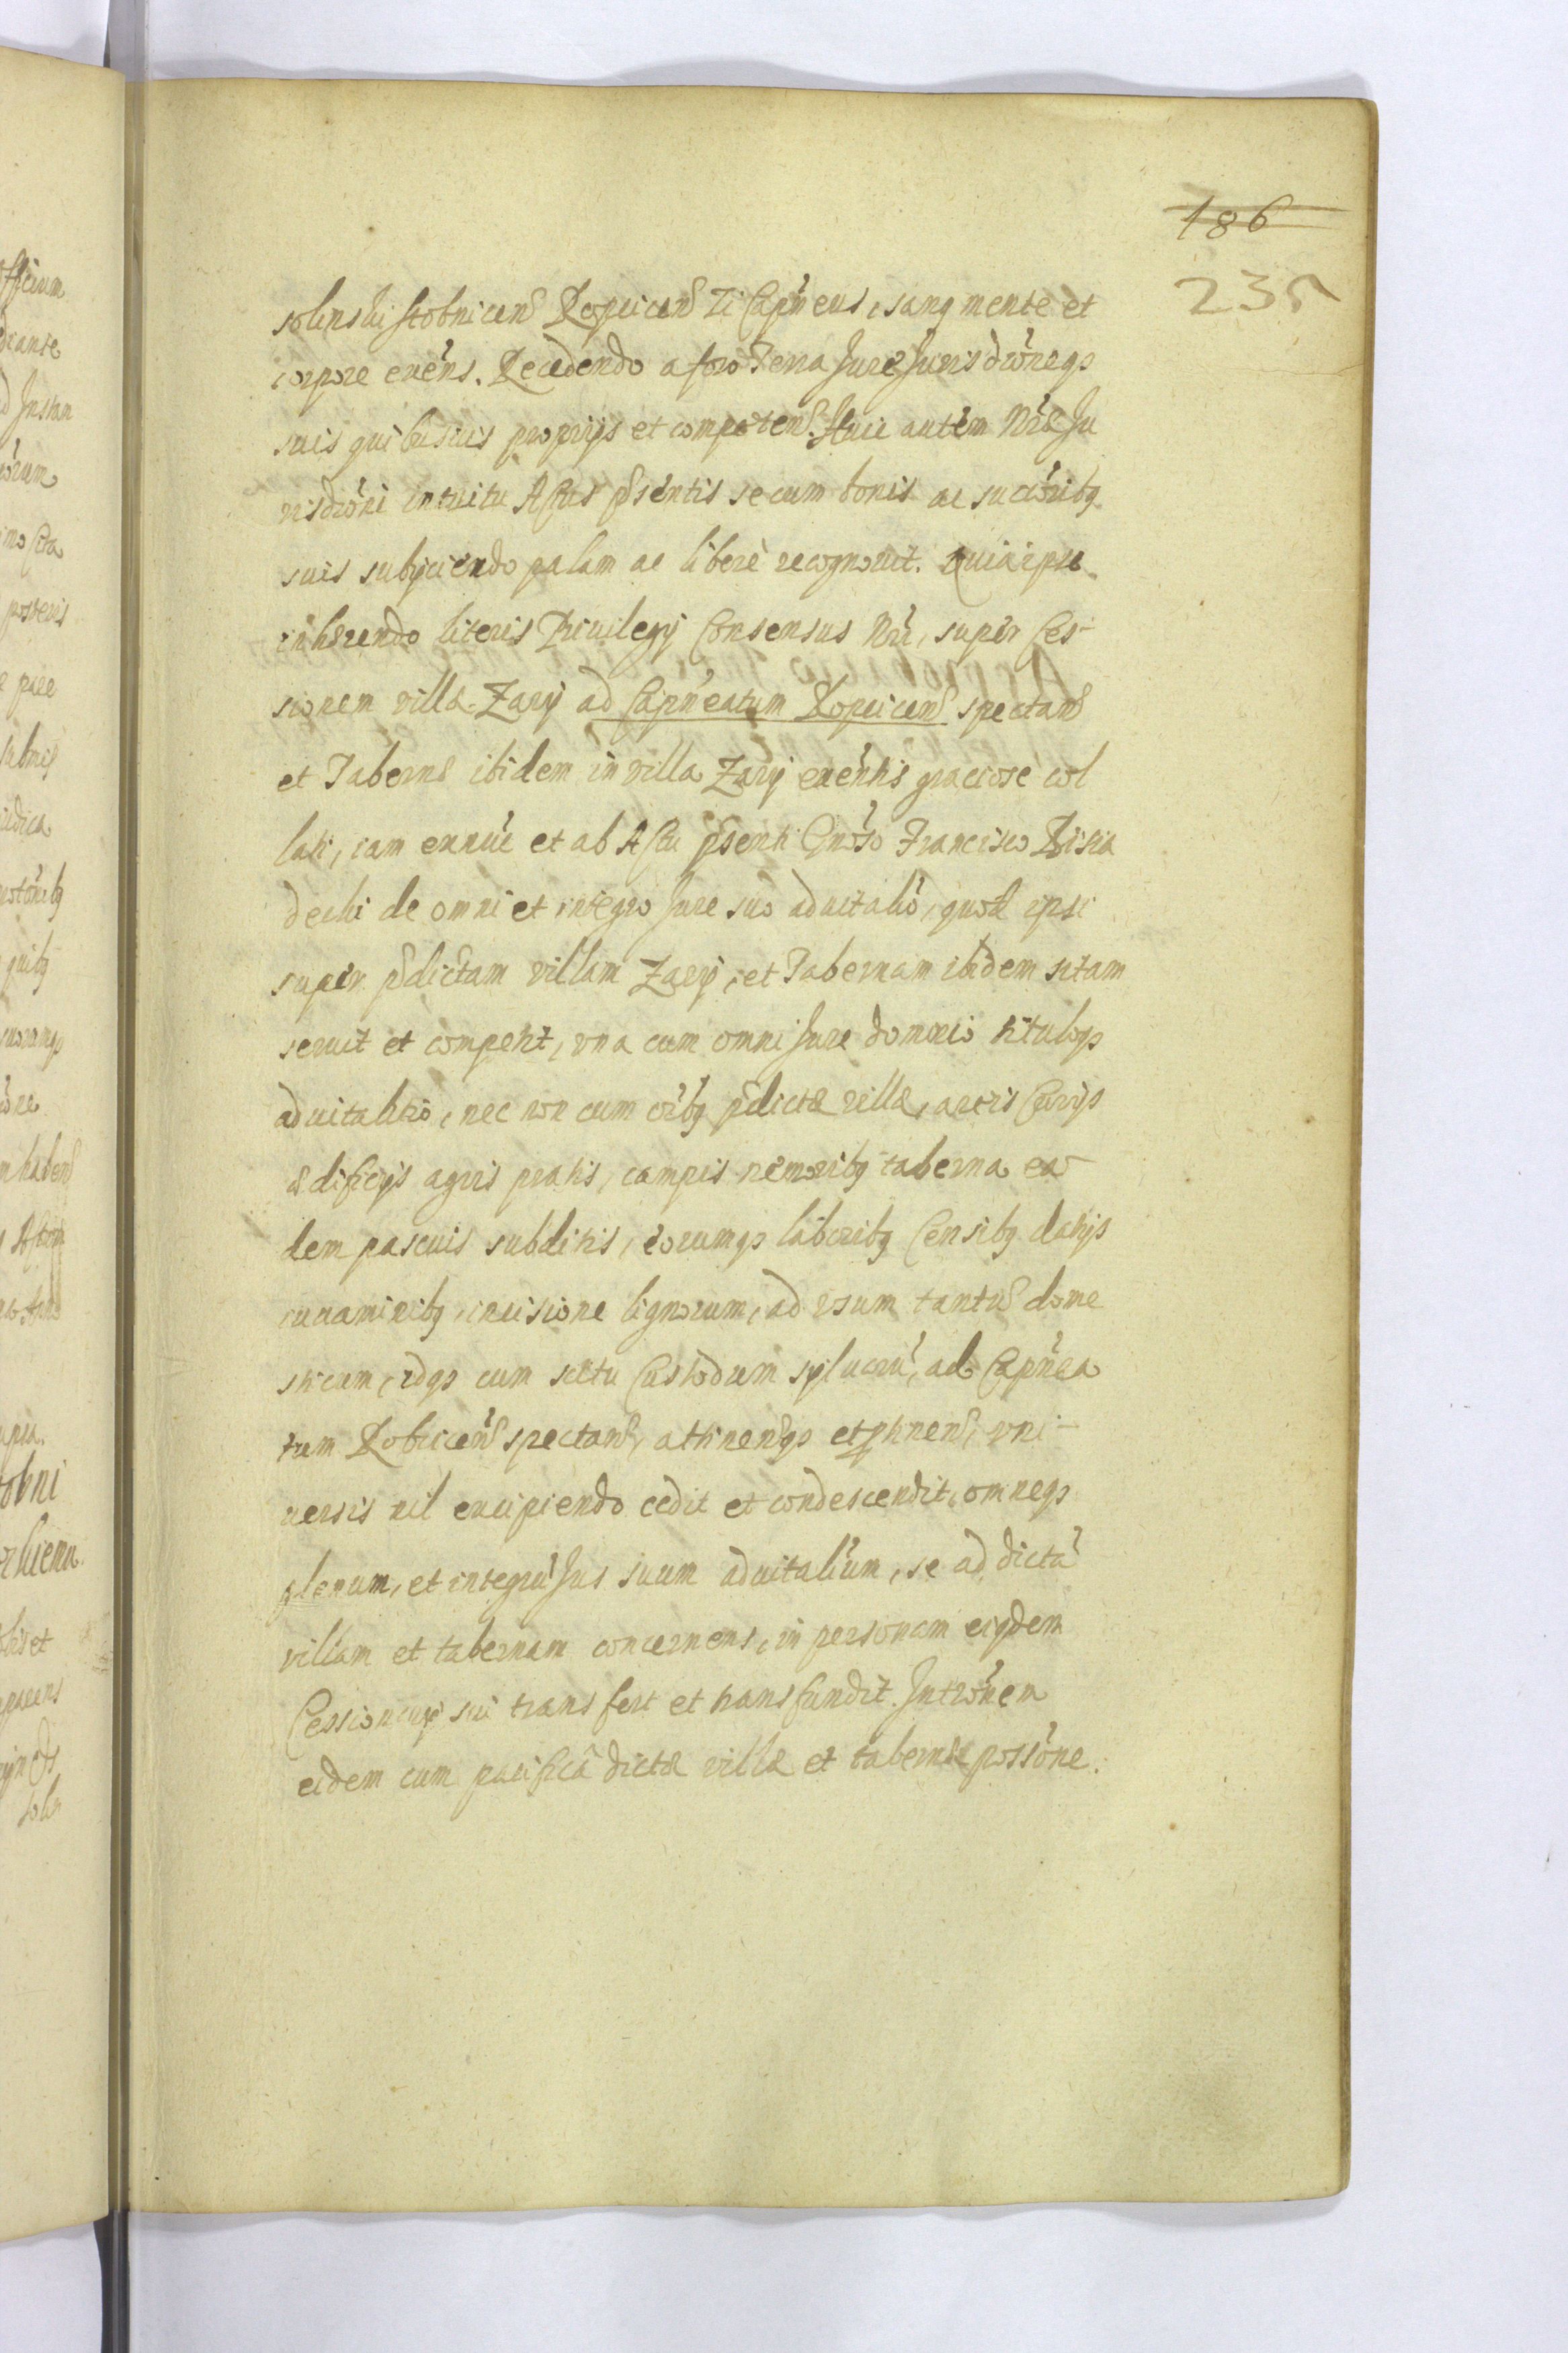 186
235
solinski Stobnicens Kopcicens Ti Capneus, sanq mente et
corpore exens. Recedendo a foro Terra Jure Jurisdrōneqz
suis quibusuis proprijs et competens. Huic autem Nrae Ju
risdrōni intuitu Actus psentis se cum bonis ac sucribq
suis subijciendo palam ac liberè recognouit. Quia ipse
inhaerendo literis Priuilegij Consensus Nri, super Ces-
sionem villae Zarij ad Capneatum Kopcicens spectans
et Tabernae ibidem in villa Zarij exentis graciose col
lati, iam ennūc et ab Actu psenti Gnoso Francisco
decki de omni et integro Jure suo aduitalio, quod ipsi
super pdictam villam Zarij, et Tabernam ibidem sitam
seruit et competit, vna cum omni Jure domīo tituloqz
aduitalitio, nec non cum oībq pdictae villae, areis Curijs
aedificijs agris pratis, campis nemoribq taberna ea
dem pascuis subditis, eorumqz laboribq Censibq datijs
incisione lignorum, ad vsum tantū dome
sticum, idqz cum scitu Custodum syluarū, ad Capnea
tum Kobicens spectans, attinensqz et ptinens, vni-
uersis nil excipiendo cedit et condescendit, omneqz
plenum, et integrū Jus suum aduitalium, se ad dictā
villam et tabernam concernens, in personam eiqdem
Cessionarij sui transfert et transfundit. Intrōnem
eidem cum pacificā dictae villae et tabernae possōne.